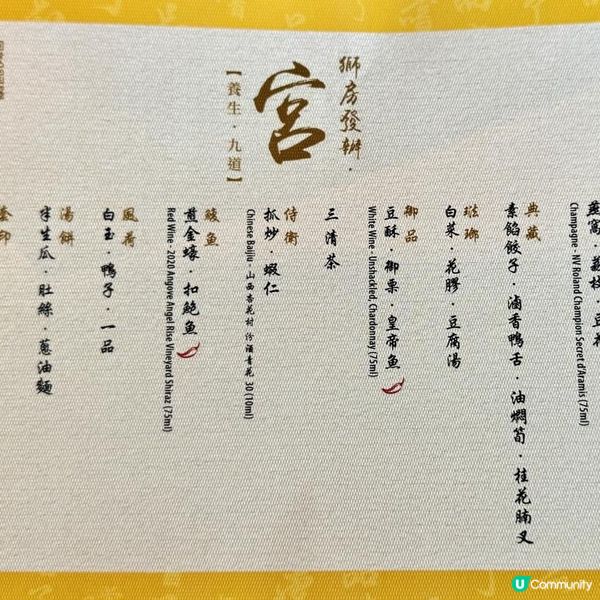 獅房發辦·
宮
【養生·九道】
燕窩·荔枝·豆
Champagne - NV Roland Champion Secret d'Aramis (75ml)
典藏
素餡餃子·滷香鴨舌·油燜筍·桂花腩叉
琺瑯
白菜·花膠·豆腐湯
御品
豆酥·御栗·皇帝魚
White Wine - Unshackled, Chardonnay (75ml)
三清茶
侍衛
抓炒·蝦仁
Chinese Baijiu - 山西杏花村 汾酒青花 30 (10ml)
鮻魚
煎金蠔·扣鮑魚
Red Wine - 2020 Angove Angel Rise Vineyard Shiraz (75ml)
風荷
白玉·鴨子·一品
湯餅
半生瓜·肚絲·蔥油麵
印
U Community